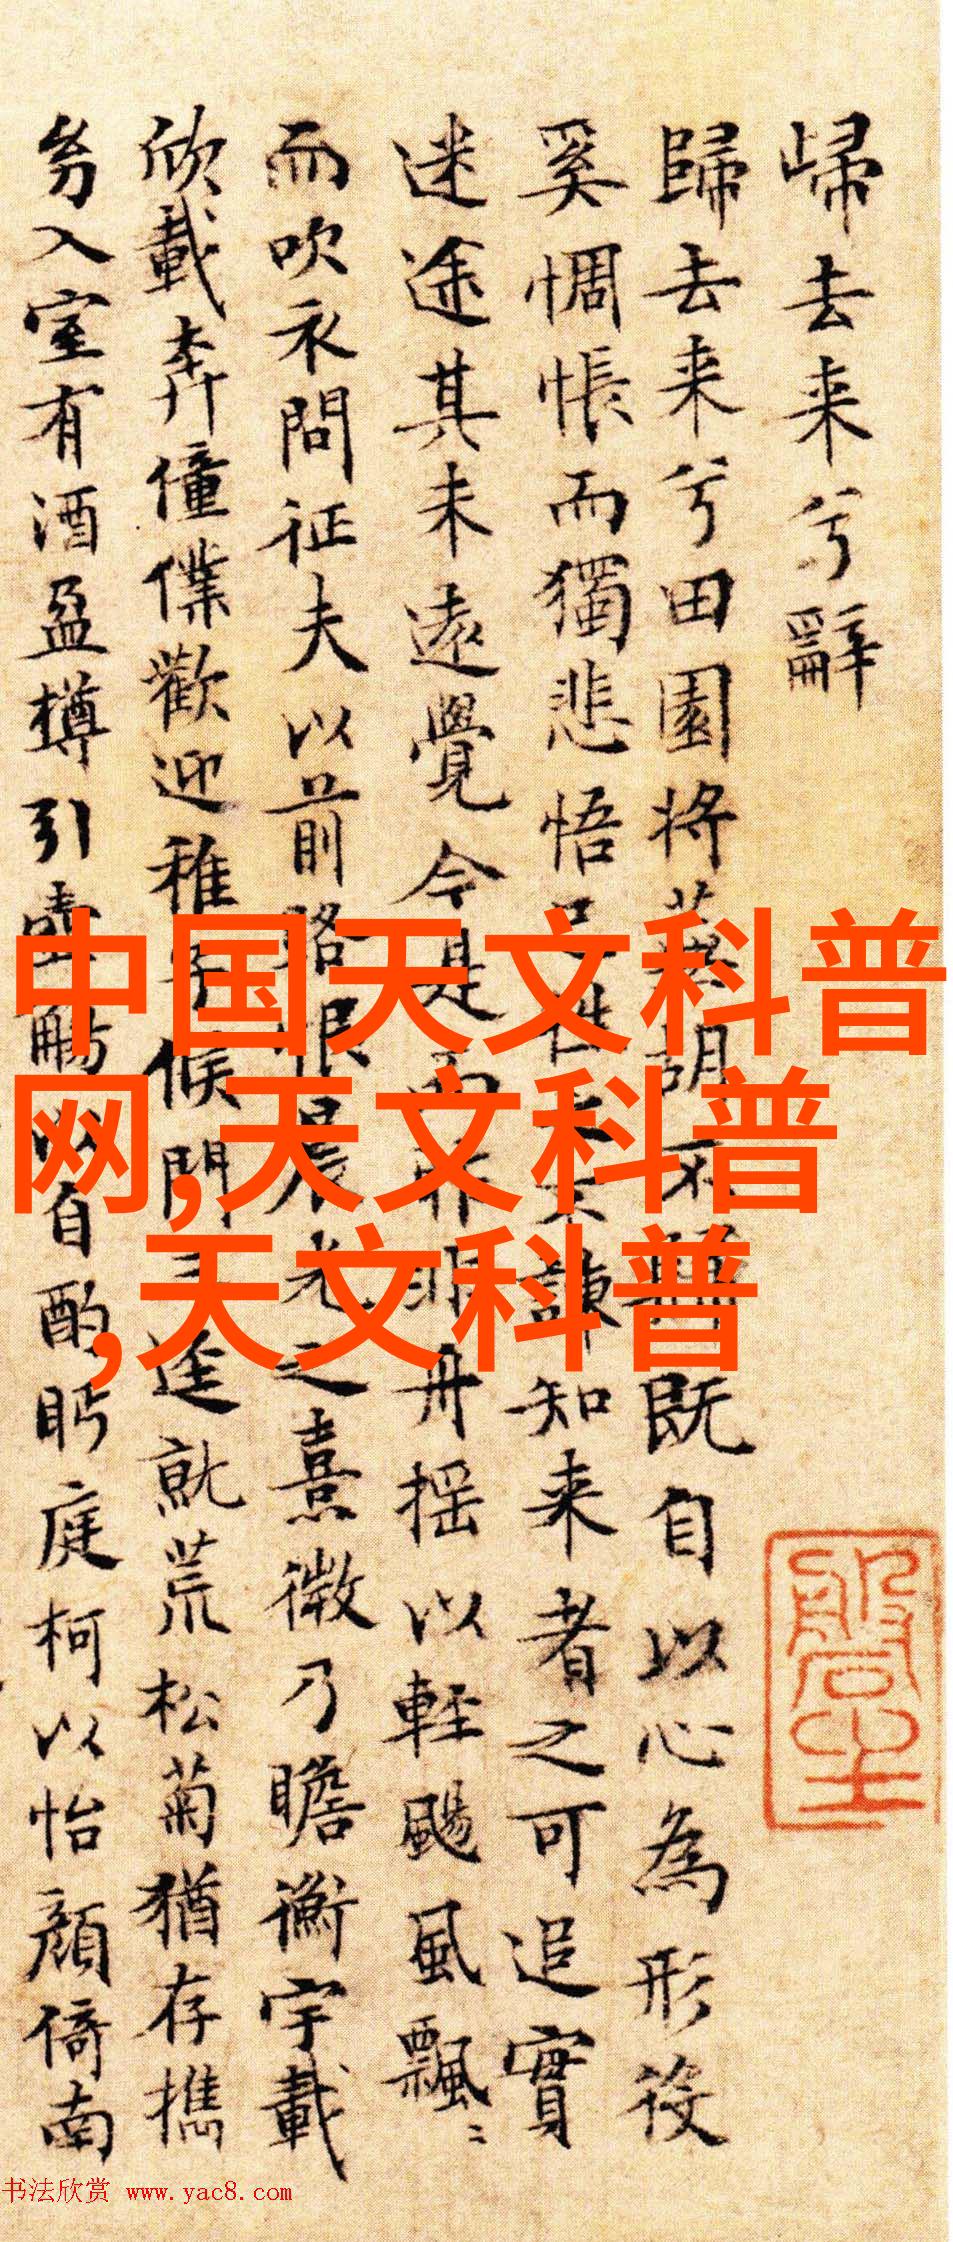 歸去来兮辭
歸去来兮田園将蕪胡不歸既自以心為形役
奚惆悵而獨悲悟已往之不諫知来者之可追實
迷途其未遠覺今是而昨非舟揺以輕颺風飄〻
而吹衣問征夫以前路恨晨光之熹微乃瞻衡宇載
欣載奔僮僕歡迎稚子候門三逕就荒松菊猶存携
幼入室有酒盈樽引壺觴以自酌眄庭柯以怡顏倚南
中国天文科普
网,天文科普
,天文科普
书法欣赏 www.yac8.com